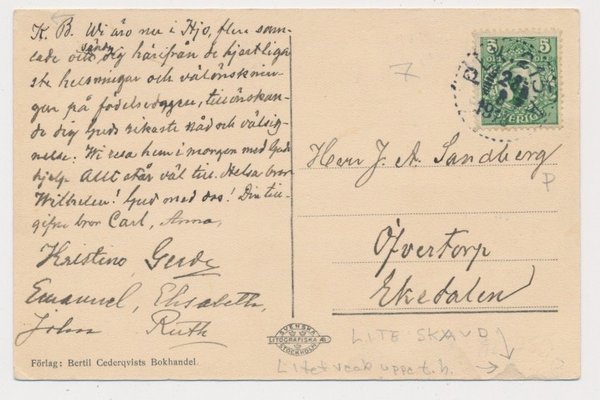 K. B. Wi äro nu i Hjo, flera sam-
lade och sända dig härifrån de hjertligas-
te helsningar och välönsknin-
gar på födelsedagen, tillönskan-
de dig Guds rikaste nåd och välsig-
nelse. Wi resa hem i morgon med Guds
hjelp. Allt står väl till. Helsa bror
Wilhelm! Gud med oss! Din till-
gifne bror Carl, Anna,
Kristina, Gerda
Emanuel, Elisabeth,
John Ruth
Förlag: Bertil Cederqvists Bokhandel.
5 5
SVERIGE
7
Herr J. A. Sandberg
P
Öfvertorp
Ekedalen
SVENSKA
LITOGRAFISKA AB
STOCKHOLM
LITE SKAVD
Litet veck uppe t.h.